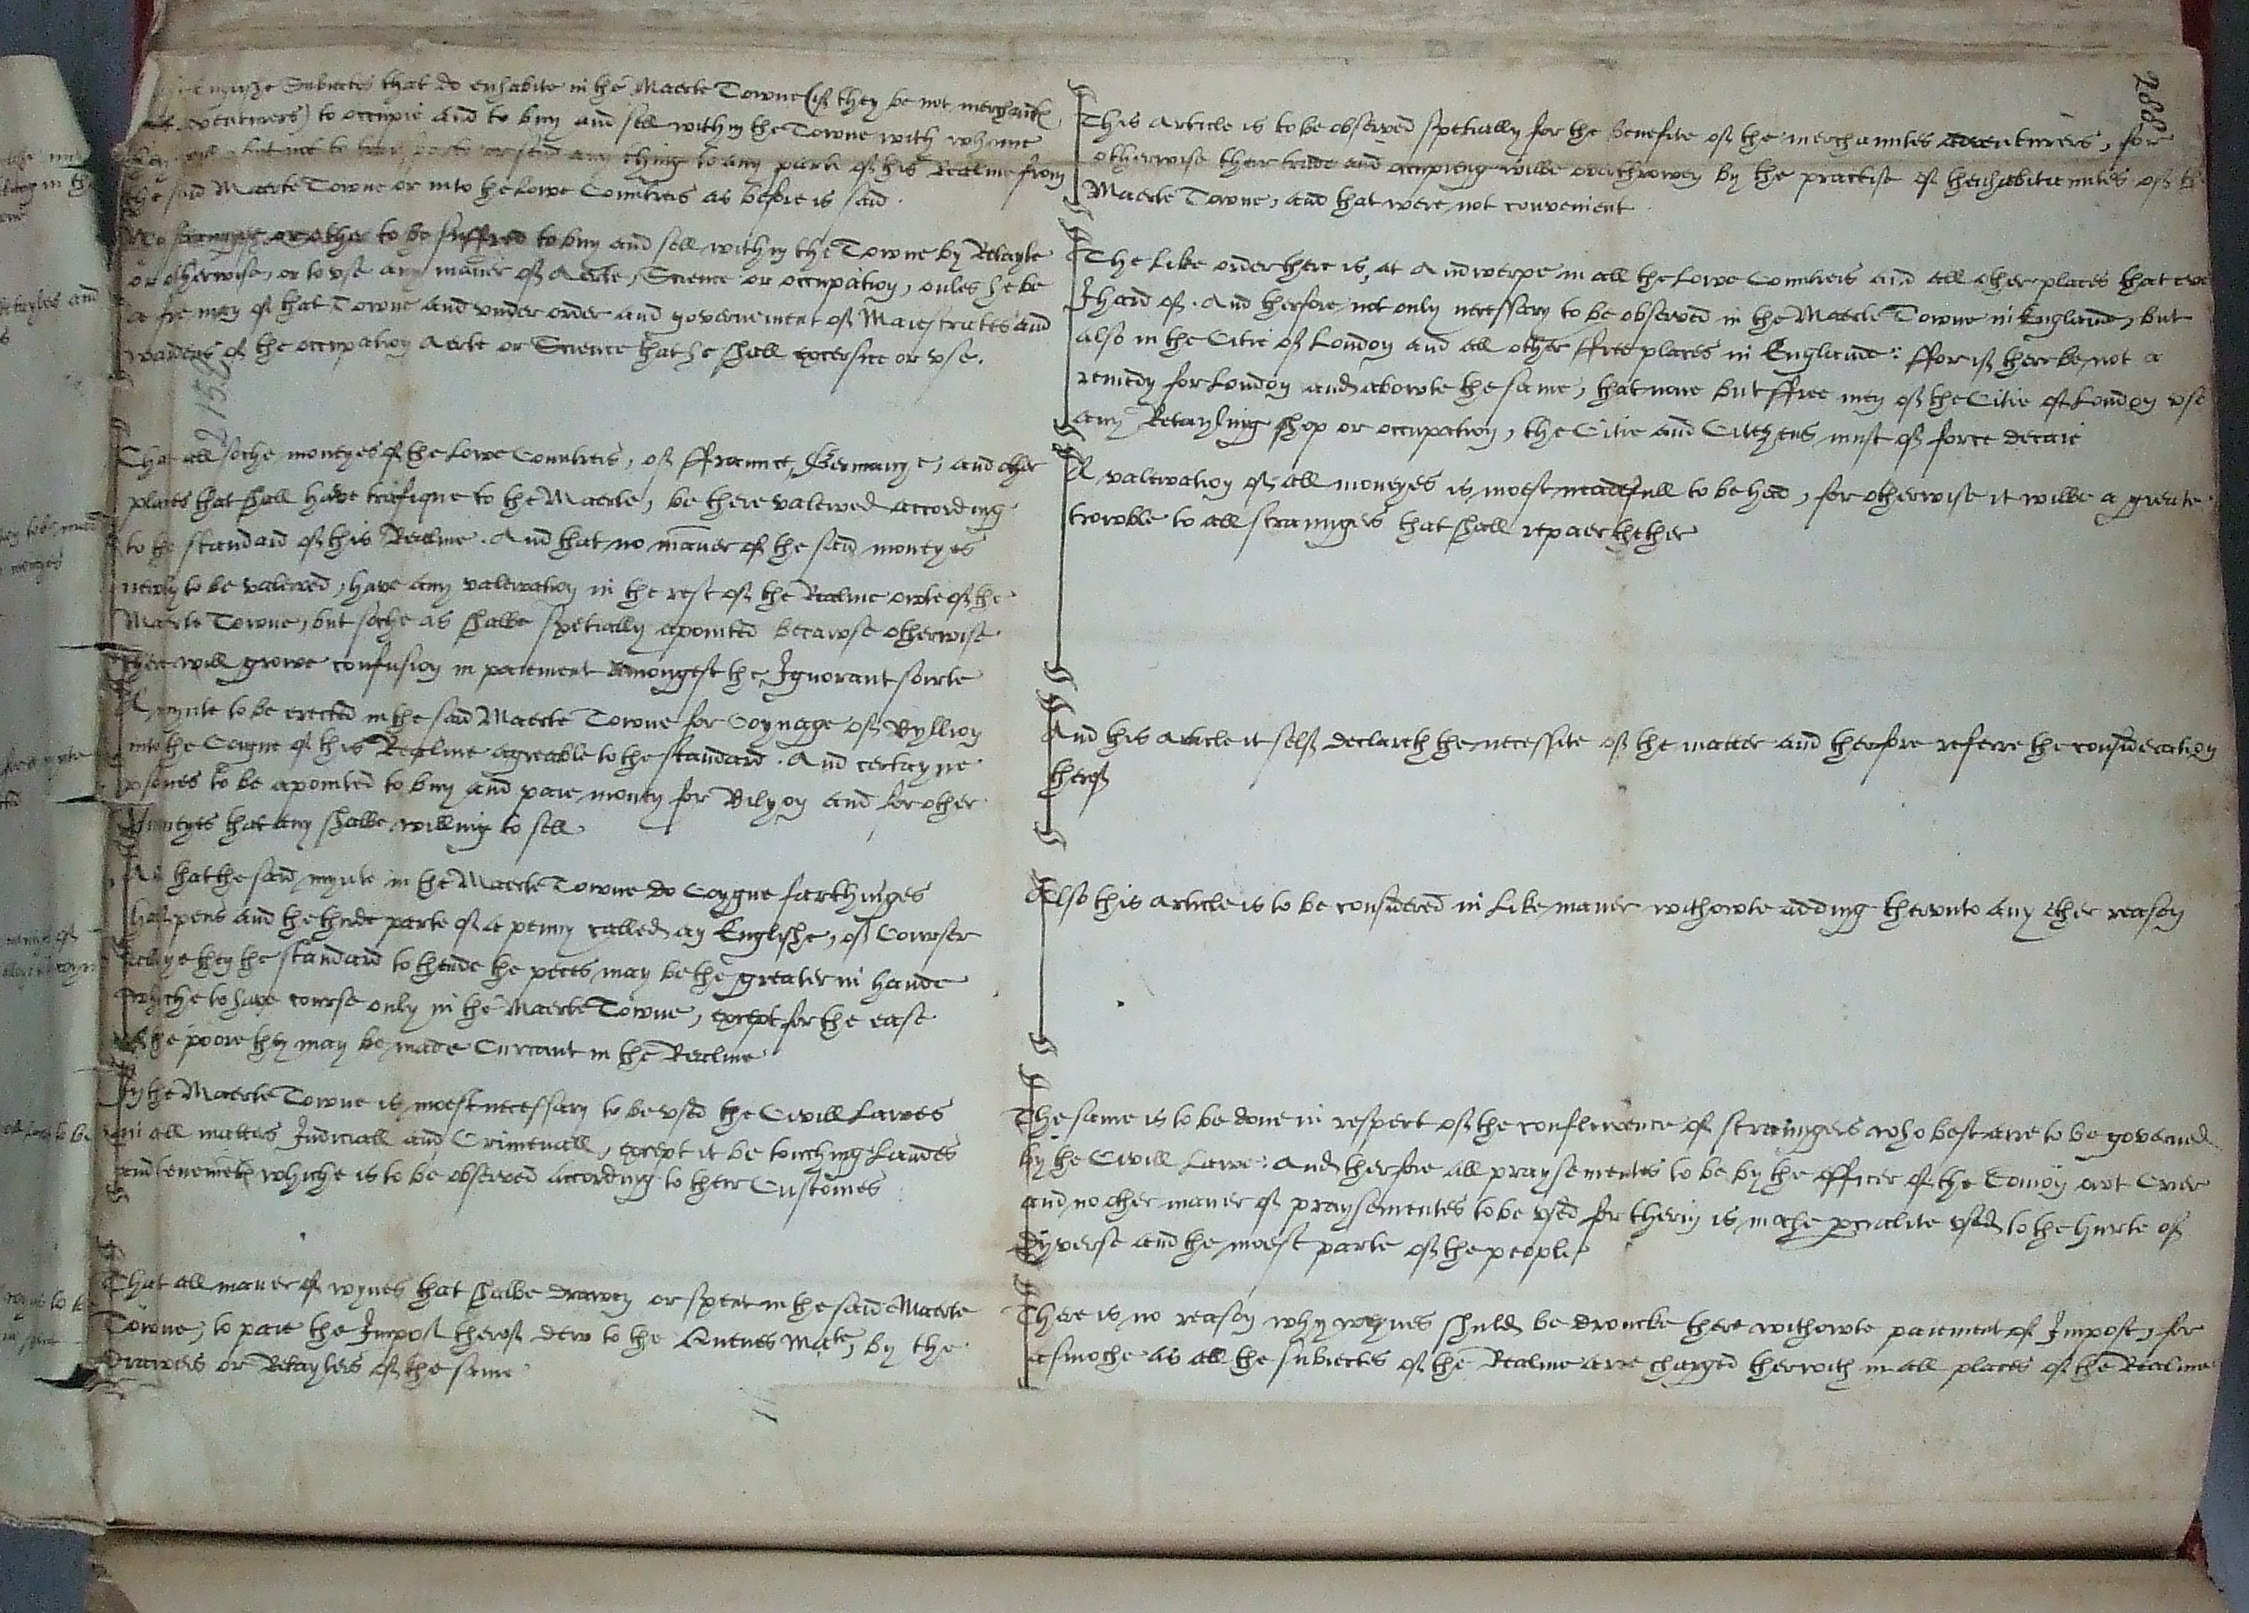 Subiectes that do enhabite in the Maerte Towne (if they be not merchantes
aventurers) to occupie and to buy and sell within the Towne with whome
they will but not to any thing to any parte of this Realme from
the said Maerte Towne or into the Lowe Countreis as before is said.
No straunger or other to be suffred to buy and sell within the Towne by Retayle
or otherwise, or to vse any maner of Aerte, Science or occupation, onles he be
a fre man of that Towne and vnder order and governement of Maiestrates and
wardens of the occupation Aerte or Science that he shall excersice or vse.
That all soche moneyes of the Lowe Countreis, of ffraunce, Germanye, and other
places that shall have trafique to the Maerte, be there valewed according
to the standard of this Realme. And that no maner of the said moneyes
newly to be valewed, have any valewation in the rest of the Realme owte of the
Maerte Towne, but soche as shalbe spetially apointed becawse otherwise
there will growe confusion in paiement amongest the Ignorant soirte
A mynte to be erected in the said Maerte Towne for Coynage of Byllion
into the Coigne of this Realme agreable to the standard. And certayne
psones to be apointed to buy and paie money for Bilyon and for other
Moneyes that any shalbe willing to sell
that the said mynte in the Maerte Towne do Coygne farthinges
halfpens and the thirde parte of a penny called an Englishe, of Cowrser
allaye then the standard to thende the peces may be the greater in hande
whiche to have course only in the Maerte Towne, except for the ease
of the poore they may be made Currant in the Realme
In the Maerte Towne is moest necessary to be vsed the Civill Lawes
in all matters Judiciall and Crimenall, except it be touching Landes
and tenementes whiche is to be observed according to their Customes
That all maner of wynes that shalbe drawen or spent in the said Maerte
Towne, to paie the Impost therof dew to the Quenes Matie, by the
Drawers or Retaylers of the same
288
This Article is to be observed spetially for the benefite of the merchauntes adventurers, for
otherwise their trade and occupieng wilbe overthrowen by the practise of thenhabitauntes of the
Maerte Towne, and that were not convenient
The Like order there is, at Andwerpe in all the Lowe Countreis and all other places that ever
I hard of. And therfore not only necessary to be observed in the Maerte Towne in Englande, but
also in the Citie of London and all other ffree places in Englande: ffor if there be not a
remedy for London and abowte the same, that none but ffree men of the Citie of London vse
any Retayling shop or occupation, the Citie and Citezens must of force decaie
A valewation of all moneyes is moest neadefull to be had, for otherwise it wilbe a greate
trowble to all straungers that shall repaer thether
And this article it self declareth the necessite of the matter and therfore referre the consideration
therof
Also this article is to be considered in Like maner withowte adding therunto any other reason
The same is to be done in respect of the confluence of straungers who best arre to be governed
by the Civill Lawe. And therfore all praysementes to be by the officer of the Comon owt Crier
and no other maner of praysementes to be vsed for therin is moche vsed to the hurte of
Dyverse and the moest parte of the people
There is no reason why wynes shuld be droncke there withowte paiement of Impost, for
asmoche as all the subiectes of the Realme arre charged therwith in all places of the Realme